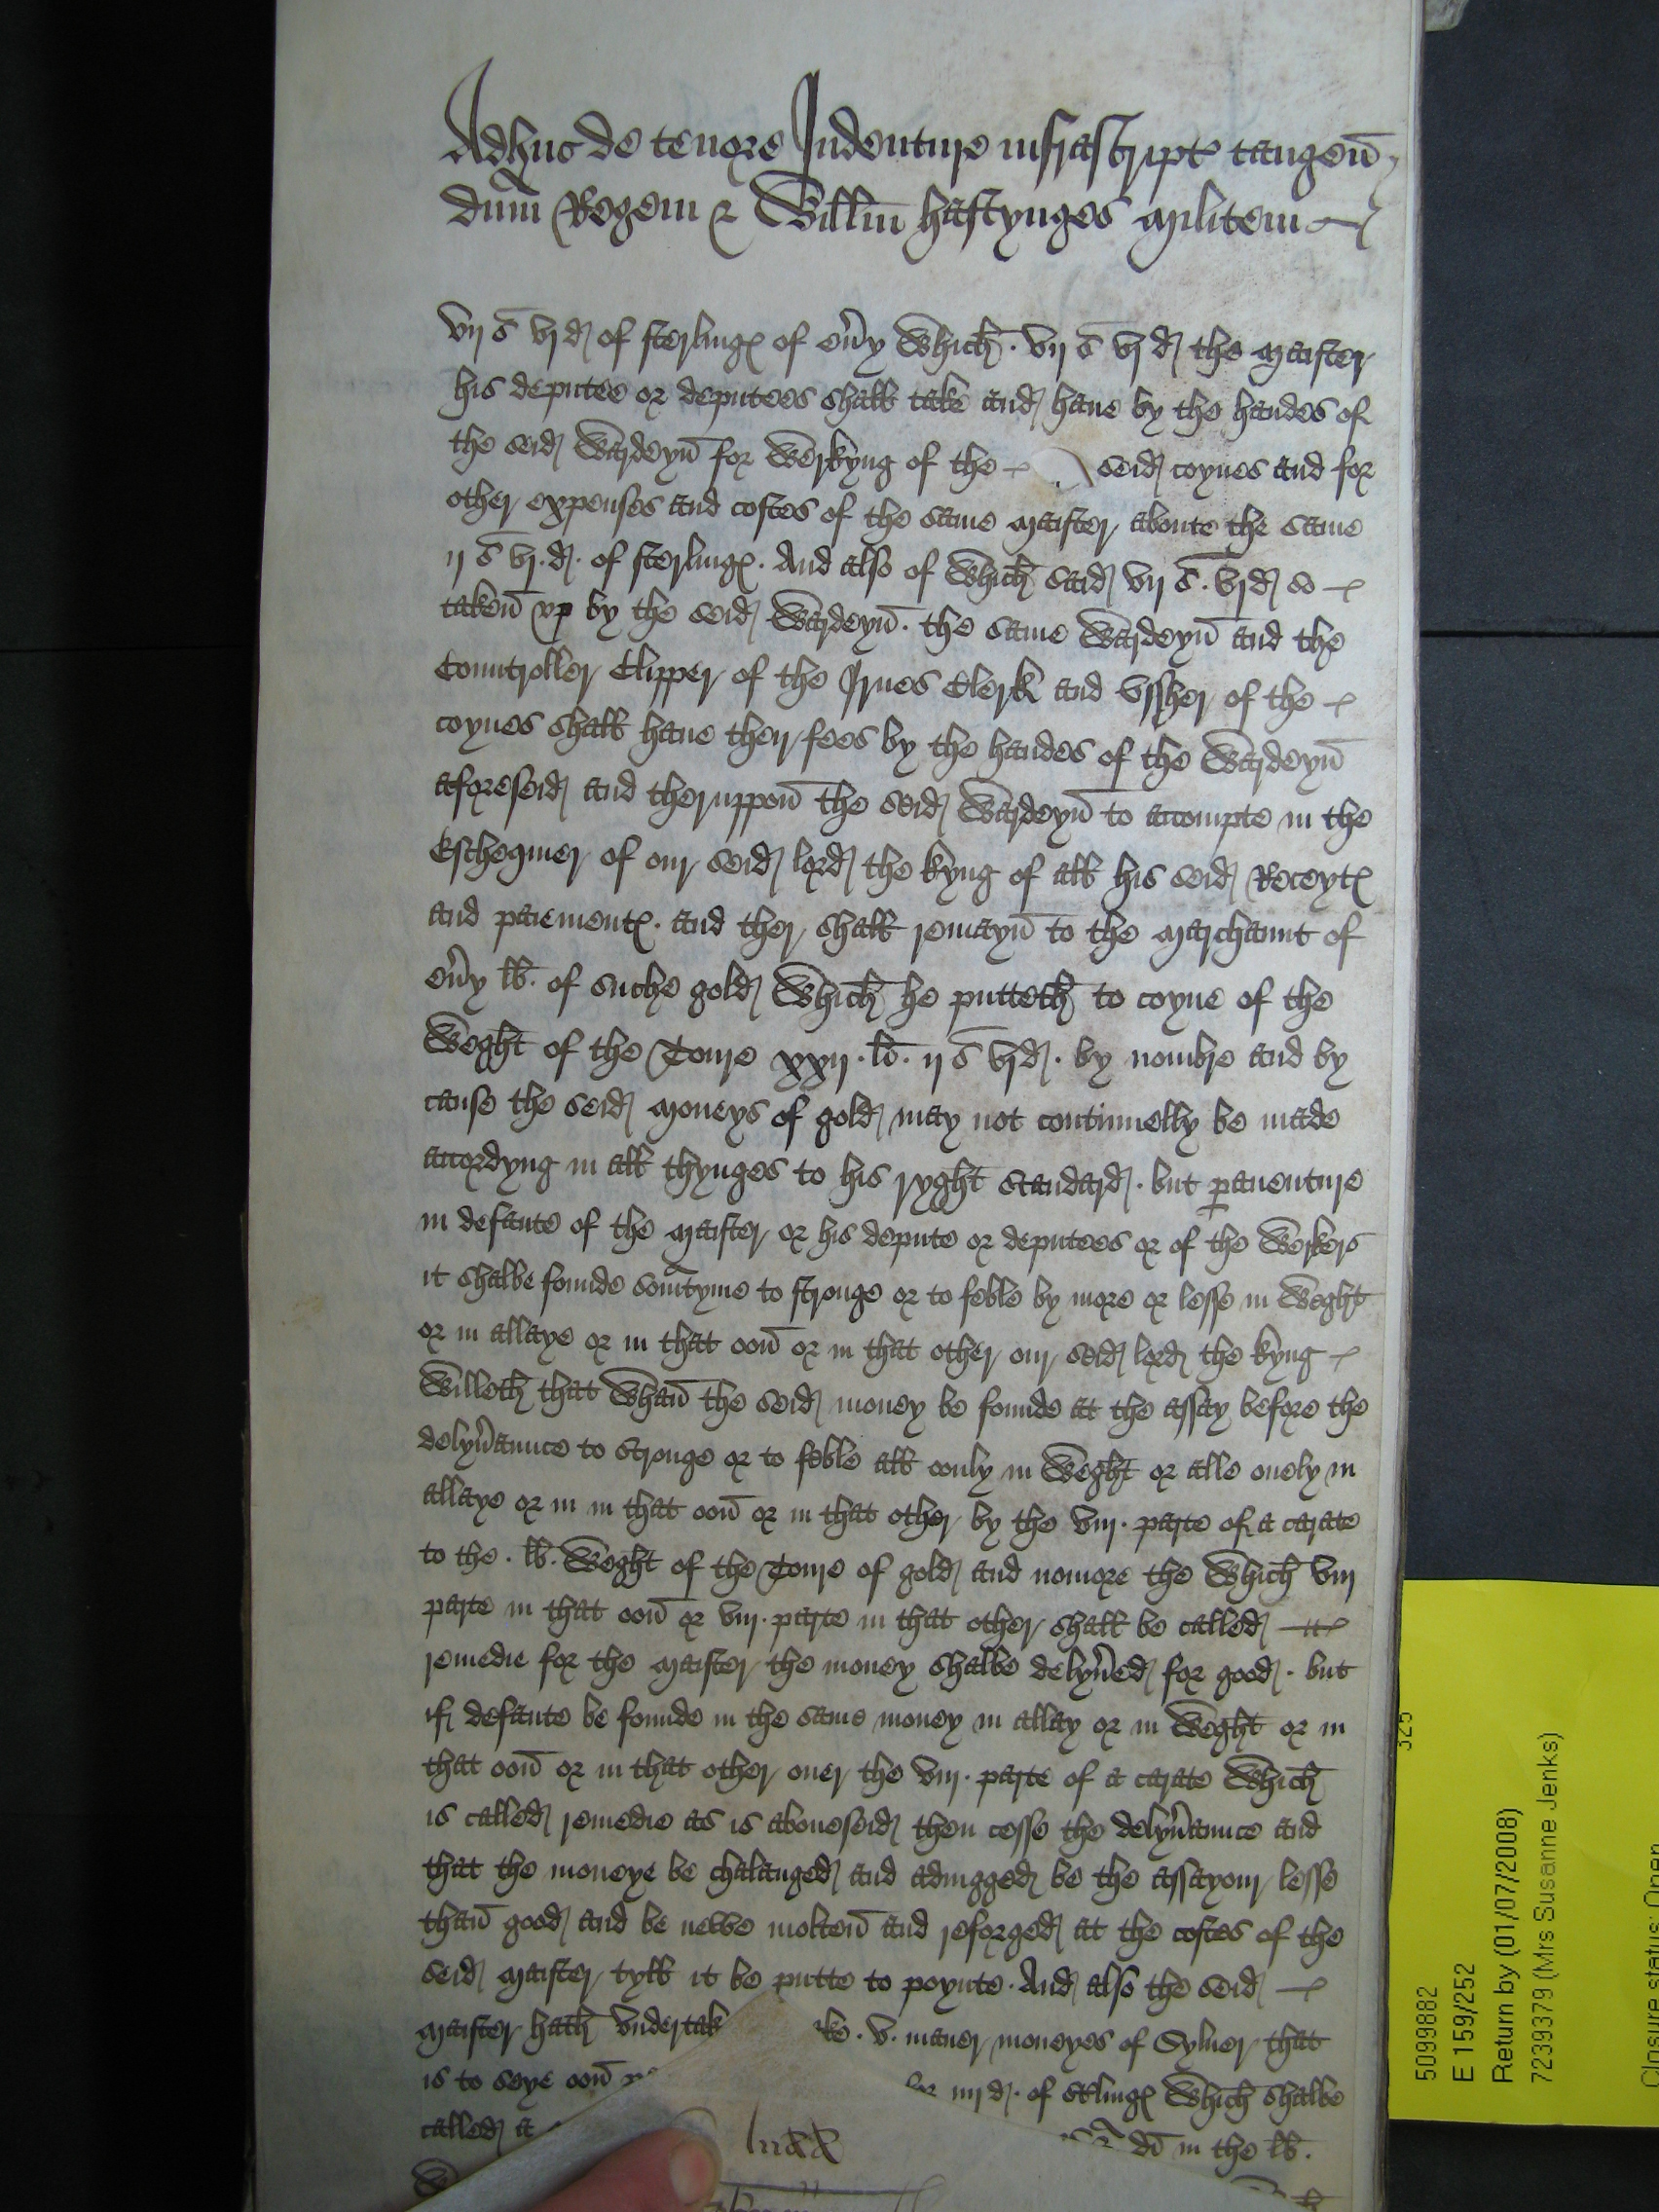 Adhuc de tenore Indenture infrascript tangen
dnm Regem & Willm hastynges militem
vij s vj d of sterling of eny Which . vij s vj d the maister
his deputee or deputees shall take and haue by the handes of
the seid Wardeyn for Werkyng of the seid coynes and for
other expenses and costes of the same maister aboute the same
ij s vj . d . of sterling . And also of Which said vij s . vj d so
taken vp by the seid Wardeyn . the same Wardeyn and the
Countroller Clipper of the Irnes Clerk and Vssher of the
coynes shall haue their fees by the handes of the Wardeyn
aforeseid and theruppon the seid Wardeyn to accompte in the
Eschequier of our seid lord the kyng of all his seid Receyt
and paiement . and ther shall remayn to the marchaunt of
eny lb . of suche gold Which he putteth to coyne of the
Weght of the Toure xxij . li . ij s vj d . by nombre and by
cause the seid moneys of gold may not continuelly be made
accordyng in all thynges to his ryght standard . but pauenture
in defaute of the maister or his depute or deputees or of the Werkers
it shalbe founde somtyme to stronge or to feble by more or lesse in Weght
or in allaye or in that oon or in that other our seid lord the kyng
Willeth that Whan the seid money be founde at the assay before the
delyuaunce to stronge or to feble all oonly in Weght or alle onely in
allaye or in in that oon or in that other by the viij . parte of a carate
to the . lb . Weght of the Toure of gold and nomore the Which viij
parte in that oon or viij . parte in that other shall be called
remedie for the maister the money shalbe delyued for good . but
if defaute be founde in the same money in allay or in Weght or in
that oon or in that other ouer the viij . parte of a carate Which
is called remedie as is aboueseid then cesse the delyuaunce and
that the moneye be chalanged and adiugged be the assayour lesse
than good and be newe molten and reforged at the costes of the
seid maister tyll it be putte to poynte . And also the seid
maister hath vndertak ke . v . maner moneyes of Syluer that
is to seye oon iiij d . of stling Which shalbe
called a di in the lb .
325
5099882
E 159/252
Return by (01/07/2008)
7239379 (Mrs Susanne Jenks)
Closure status: Open